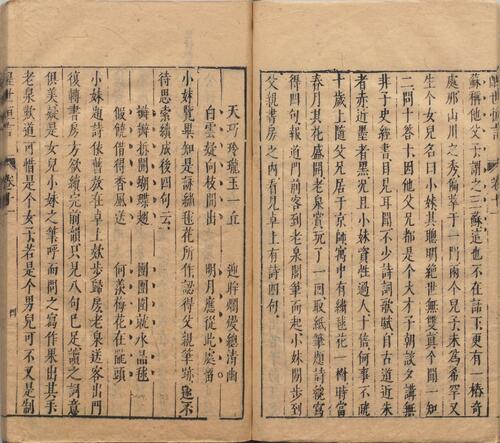 蘇稱他父子謂之三蘇這也不在話下更有一樁奇
處那山川之秀偏萃于一門兩个兒子未為希罕又
生个女兒名曰小妹其聰明絶世無雙眞个聞一知
二問十答十因他父兄都是个大才子朝談夕講無
非子史經書目見耳聞不少詩詞歌賦自古道近朱
者赤近墨者黑況且小妹資性過人十倍何事不曉
十歲上隨父兄居于京師寓中有繡毬花一樹時當
春月其花盛開老泉賞玩了一囬取紙筆題詩纔寫
得四句報道門前客到老泉閣筆而起小妹閒步到
父親書房之內看見卓上有詩四句。
天巧玲瓏玉一丘 迎眸爛熳總清幽
白雲疑向枝間出 明月應從此處畱
小妹覽畢知是詠繡毬花所作認得父親筆跡遂不
待思索續成後四句云
瓣瓣拆開蝴蝶翅 團團圍就水晶毬
假饒借得香風送 何羨梅花在隴頭
小妹題詩依舊放在卓上欵步歸房老泉送客出門
復轉書房方欲續完前韻只見八句已足讀之詞意
俱美疑是女兒小妹之筆呼而問之寫作果出其手
老泉歎道可惜是个女子若是个男兒可不又是制
醒世恒言 卷十一